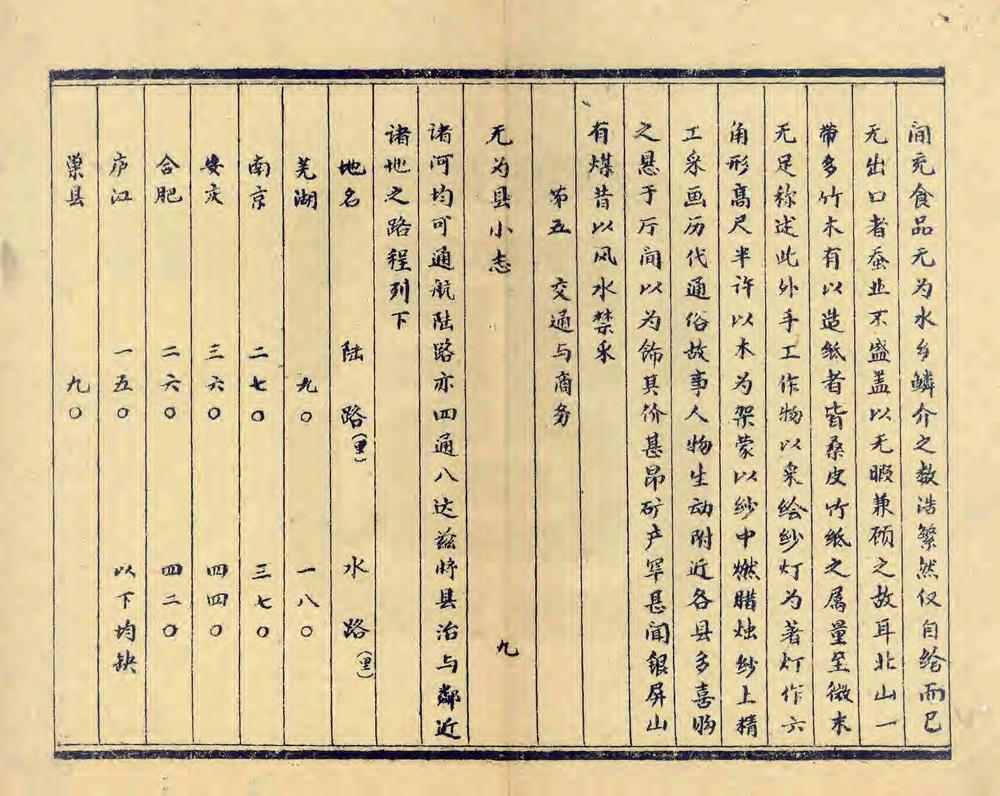 间充食品无为水乡鳞介之数浩繁然仅自给而已
无出口者蚕业不盛盖以无暇兼顾之故耳北山一
带多竹木有以造纸者皆桑皮竹纸之属量至微末
无足称述此外手工作物以采绘纱灯为著灯作六
角形高尺半许以木为架蒙以纱中燃腊烛纱上精
工采画历代通俗故事人物生动附近各县多喜购
之悬于厅间以为饰其价甚昂矿产罕甚闻银屏山
有煤昔以风水禁采
第五 交通与商务
无为县小志 九
诸河均可通航陆路亦四通八达兹将县治与邻近
诸地之路程列下
地名 陆路(里) 水路(里)
芜湖 九〇 一八〇
南京 二七〇 三七〇
安庆 三六〇 四四〇
合肥 二六〇 四二〇
庐江 一五〇 以下均缺
巢县 九〇